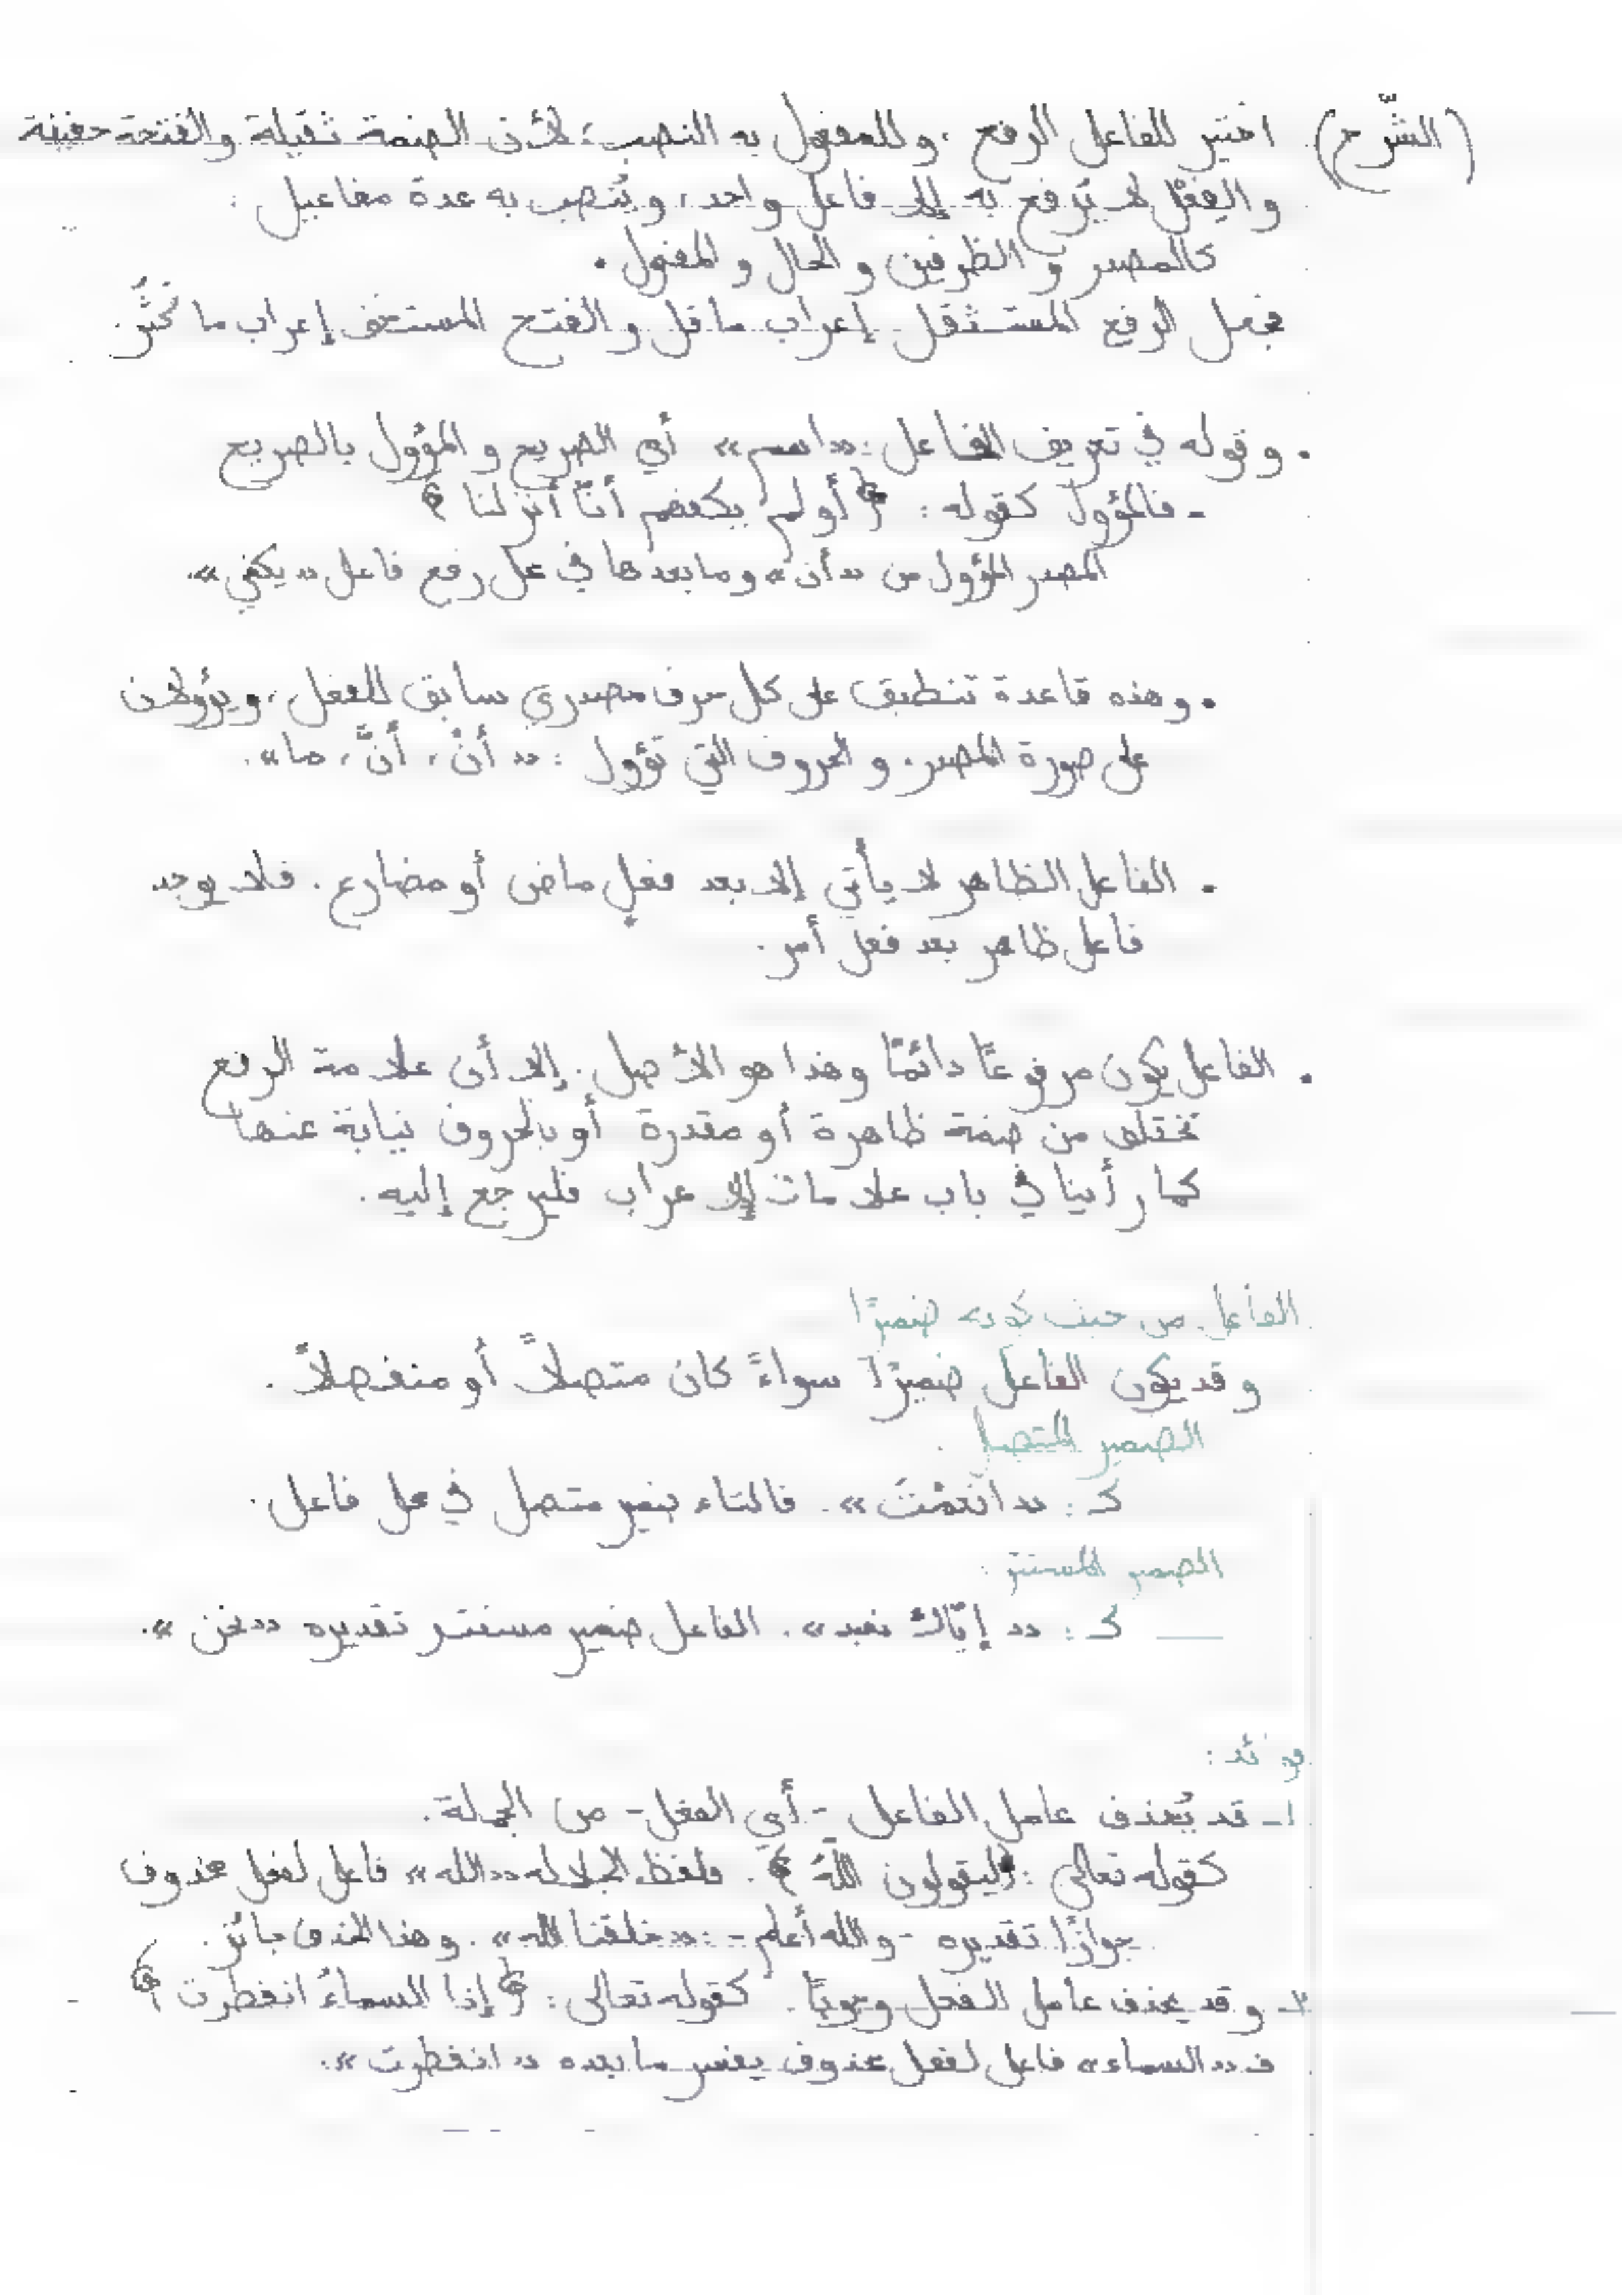 (الشّرح) اختير للفاعل الرفع، وللمفعول به النصب؛ لأن الضمة ثقيلة والفتحة خفيفة
والفعل لا يُرفع به إلا فاعل واحد، ويُنصب به عدة مفاعيل:
كالمصدر والظرفين والحال والمفعول.
فجعل الرفع المستثقل إعراب ما قل والفتح المستخف إعراب ما كَثُر.
• وقوله في تعريف الفاعل: «اسم» أي الصريح والمؤول بالصريح
- فالمؤول كقوله: ﴿أولم يكفهم أنّا أنزلنا﴾
المصدر المؤول من «أن» وما بعدها في محل رفع فاعل «يكفي».
• وهذه قاعدة تنطبق على كل حرف مصدري سابق للفعل، ويؤولان
على صورة المصدر. والحروف التي تؤول: «أنْ، أنَّ، ما».
• الفاعل الظاهر لا يأتي إلا بعد فعلٍ ماض أو مضارع. فلا يوجد
فاعل ظاهر بعد فعل أمر.
• الفاعل يكون مرفوعًا دائمًا وهذا هو الأصل. إلا أن علامة الرفع
تختلف من ضمة ظاهرة أو مقدرة أو بالحروف نيابة عنها
كما رأينا في باب علامات الإعراب فليرجع إليه.
الفاعل من حيث كونه ضميرًا
وقد يكون الفاعل ضميرًا سواءً كان متصلاً أو منفصلاً.
الضمير المتصل
كـ: «أنعمْتَ». فالتاء ضمير متصل في محل فاعل.
الضمير المستتر:
كـ: «إيّاك نعبد». الفاعل ضمير مستتر تقديره «نحن».
فوائد:
١- قد يُحذف عامل الفاعل - أي الفعل - من الجملة.
كقوله تعالى: ﴿ليقولون اللَّهُ﴾. فلفظ الجلالة «الله» فاعل لفعل محذوف
جوازًا تقديره - والله أعلم -: «خلقنا الله». وهذا الحذف جائز.
٢- وقد يحذف عامل الفعل وجوبًا. كقوله تعالى: ﴿إذا السماءُ انفطرت﴾
فـ «السماء» فاعل لفعل محذوف يفسر ما بعده «انفطرت».